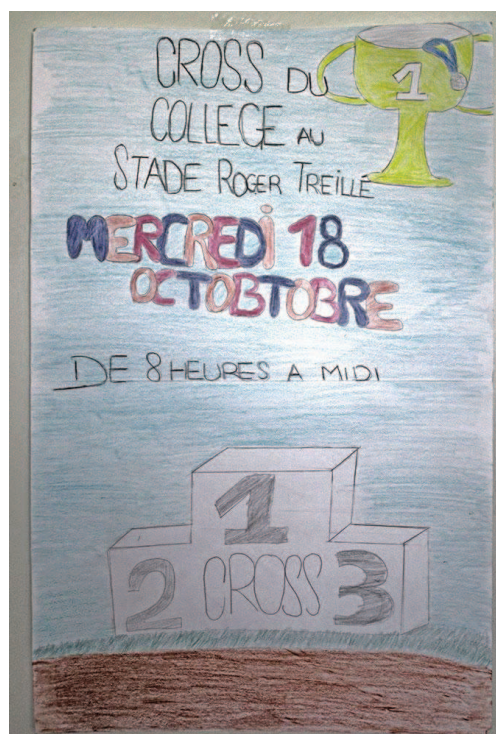 CROSS DU
COLLEGE AU
STADE ROGER TREILLE
1
MERCREDI 18
OCTOBTOBRE
DE 8 HEURES A MIDI
1
2 CROSS 3